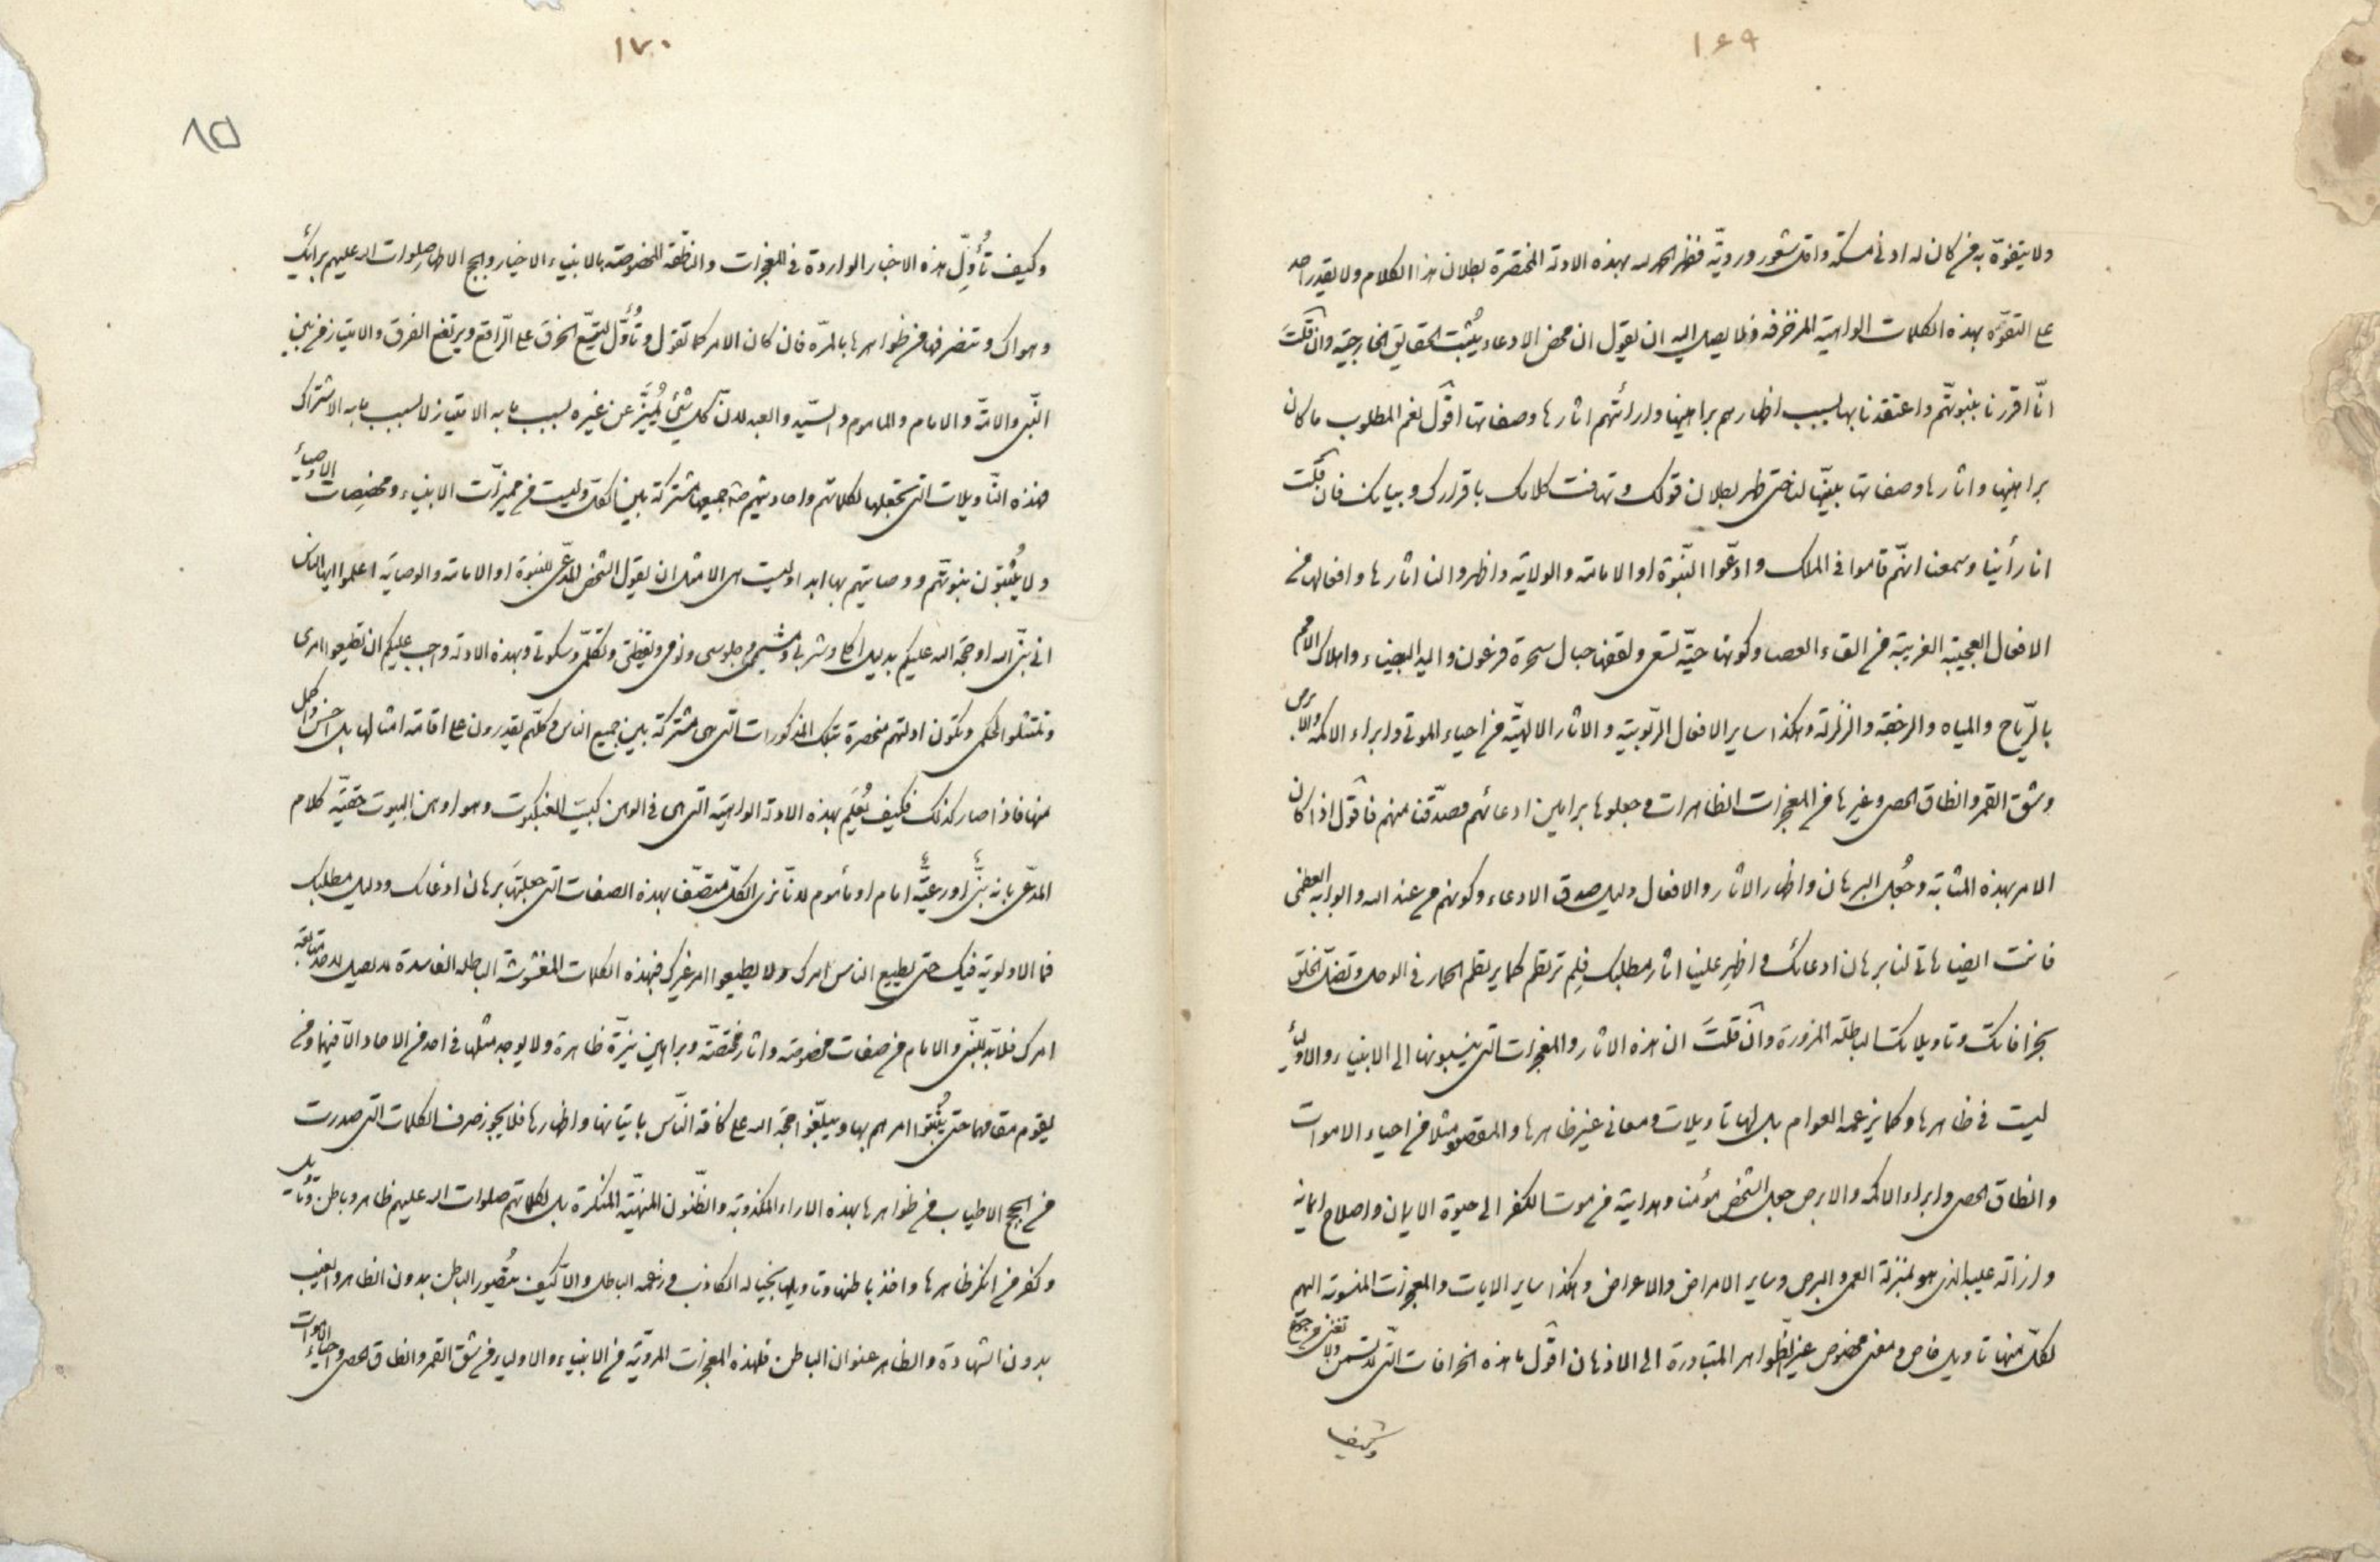 ١٦٩
ولا يتفوّه به من كان له ادنى مسكة واقل شعور ورويّة فظهر الحمد لله بهذه الادلة المختصرة بطلان هذا الكلام ولا يقدر احد
على التفوّه بهذه الكلمات الواهية المزخرفة ولا يصل اليه ان يقول ان محض الادعاء يُثبت الحقايق الخارجية وان قلتَ
انّا اقررنا بنبوتّهم واعتقدنا بها بسبب اظهارهم براهينها واراءتهم اثارها وصفاتها اقول نعم المطلوب ما كان
براهينها واثارها وصفاتها بيّنها لنا حتى ظهر بطلان قولك وتهافت كلامك باقرارك وبيانك فان قلت
انا رأينا وسمعنا انهّم قاموا في الملك وادّعوا النّبوة او الامامة والولاية واظهروا لنا اثارها وافعالها من
الافعال العجيبة الغريبة من القاء العصا وكونها حيّة تسعى ولقفها حبال سحرة فرعون واليد البيضاء واهلاك الامم
بالرّياح والمياه والرجفة والزلزلة وهكذا ساير الافعال الرّبوبية والاثار الالهيّة من احياء الموتى وابراء الاكمه والابرص
وشق القمر وانطاق الحصى وغيرها من المعجزات الظاهرات وجعلوها براهين ادعائهم فصدّقنا منهم فاقول اذا كان
الامر بهذه المثابة وجُعل البرهان واظهار الاثار والافعال دليل صدق الادعاء وكونهم من عند الله والبراية العظمى
فانت ايضا هات لنا برهان ادعائك واظهِر علينا اثار مطلبك فلِم ترتطم كما يرتطم الحمار في الوحل وتضلّ الخلق
بخرافاتك وتاويلاتك الباطلة المزورة وان قلتَ ان هذه الاثار والمعجزات التي ينسبونها الى الانبياء والاولياء
ليست في ظاهرها وكما يزعمه العوام بل لها تاويلات ومعاني غير ظاهرها والمقصود مثلا من احياء الاموات
وانطاق الحصى وابراء الاكمه والابرص جعل الشخص مؤمنا وهدايته من موت الكفر الى حيوة الايمان واصلاح ايمانه
وازالة عيبه الذي هو بمنزلة العمى والبرص وساير الامراض والاعراض وهكذا ساير الايات والمعجزات المنسوبة اليهم
لكلّ منها تاويل خاص ومعنى مخصوص غير الظّواهر المتبادرة الى الاذهان اقول ما هذه الخرافات التّي لا تسمن ولا تغني من جوع
وكيف
١٧٠
٨٥
وكيف تُأوِّل هذه الاخبار الواردة في المعجزات والناطقة المخصوصة بالانبياء الاخيار وبحجج الاطهار صلوات الله عليهم برايك
وهواك وتتصرفها من ظواهرها بالمرّة فان كان الامر كما تقول وتُأوّل ليتّسع الخرق على الرّاقع ويرتفع الفرق والامتياز من بين
النّبي والامّة والامام والماموم والسّيد والعبد لانّ كل شئ يُميَّز عن غيره بسبب ما به الامتياز لا بسبب ما به الاشتراك
فهذه التّاويلات التي تجعلها لكلماتهم واحاديثهم جميعها مشتركة بين الكلّ وليست من مميزات الانبياء ومخصِصات الاوصياء
ولا يُثبتون نبوتّهم ووصايتهم بها ابدا وليست هي الا مثل ان يقول الشخص المدّعي للنبوة او الامامة والوصاية اعلموا ايها الناس
اني نبّي الله او حجة الله عليكم بدليل اكلي وشربي ومشيي وجلوسي ونومي ويقظتي وتكلّمي وسكوتي وبهذه الادلة واجب عليكم ان تطيعوا امري
وتمتثلوا لحكمي وتكون ادلتهم منحصرة بتلك المذكورات التّي هي مشتركة بين جميع الناس وكلّهم يقدرون على اقامة امثالها بل احسن واكمل
منها فاذا صار كذلك فكيف يُعلَم بهذه الادلة الواهية التي هي في الوهن كبيت العنكبوت وهو اوهن البيوت حقيّة كلام
المدّعي بانه نبّيٌ او رعيّةٌ امام او مأموم لانّا نرى الكلّ متصّفا بهذه الصفات التي جعلتَها برهان ادعائك ودليل مطلبك
فما الاولوية فيك حتى يطيع الناس امرك ولا يطيعوا امر غيرك فبهذه الكلمات المغشوشة الباطلة الفاسدة لا يصل لاحد متابعة
امرك فلابّد للنّبي والامام من صفات مخصوصة واثار مختصّة وبراهين نيّرة ظاهرة ولا يوجد مثلها في احد من الاحاد الّا فيهما ومن
يقوم مقامهما حتى يُثبتوا امرهم بها ويبلّغوا حجة الله على كافة النّاس باتيانها واظهارها فلا يجوز صرف الكلمات التي صدرت
من الحجج الاطياب من ظواهرها بهذه الاراء المكذوبة والظّنون المنهيّة المنكرة بل لكلماتهم صلوات الله عليهم ظاهر وباطن وتأويل
وكفر من انكر ظاهرها واخذ باطنها وتاويلها بخياله الكاذب وزعمه الباطل والّا كيف يُتصّور الباطن بدون الظاهر والغيب
بدون الشهادة والظاهر عنوان الباطن فلهذه المعجزات المرويّة من الانبياء والاولياء من شق القمر وانطاق الحصى واحياء الاموات